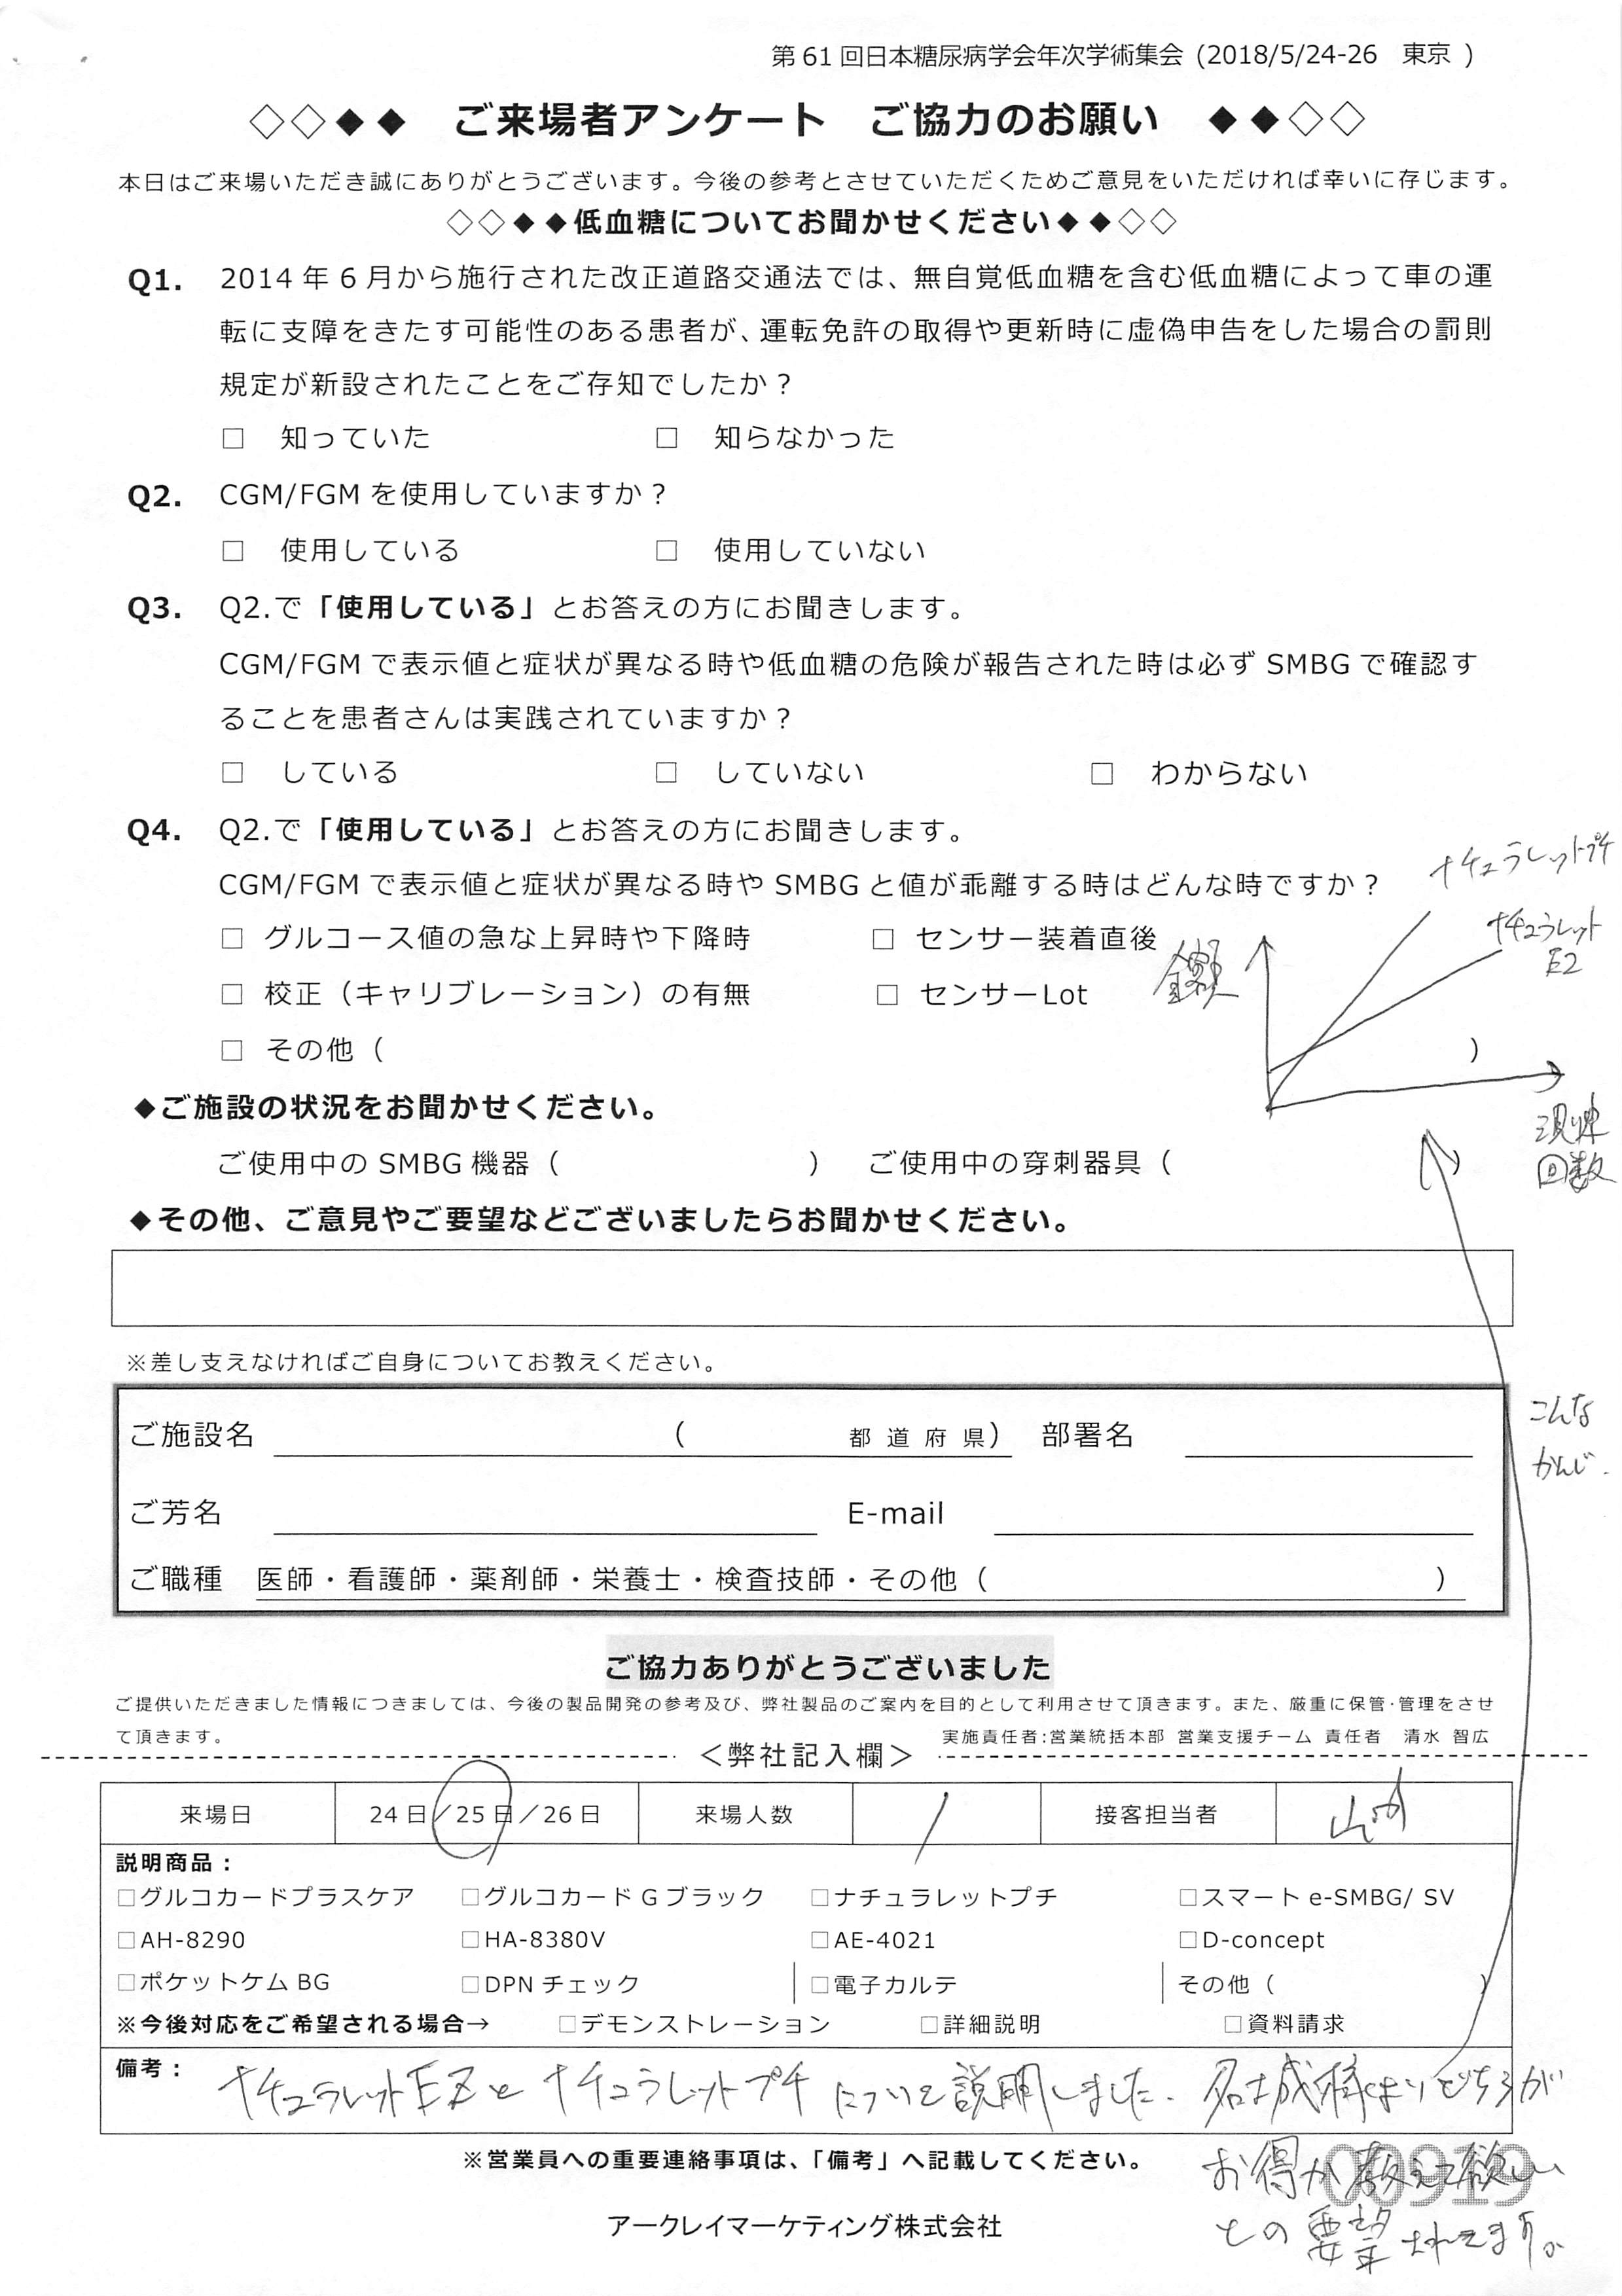 第61回日本糖尿病学会年次学術集会 (2018/5/24-26　東京 )
◇◇◆◆　ご来場者アンケート　ご協力のお願い　◆◆◇◇
本日はご来場いただき誠にありがとうございます。今後の参考とさせていただくためご意見をいただければ幸いに存じます。
◇◇◆◆低血糖についてお聞かせください◆◆◇◇
Q1. 2014年6月から施行された改正道路交通法では、無自覚低血糖を含む低血糖によって車の運
転に支障をきたす可能性のある患者が、運転免許の取得や更新時に虚偽申告をした場合の罰則
規定が新設されたことをご存知でしたか？
□　知っていた　□　知らなかった
Q2. CGM/FGMを使用していますか？
□　使用している　□　使用していない
Q3. Q2.で「使用している」とお答えの方にお聞きします。
CGM/FGMで表示値と症状が異なる時や低血糖の危険が報告された時は必ずSMBGで確認す
ることを患者さんは実践されていますか？
□　している　□　していない　□　わからない
Q4. Q2.で「使用している」とお答えの方にお聞きします。
CGM/FGMで表示値と症状が異なる時やSMBGと値が乖離する時はどんな時ですか？
ナチュラレットプチ
ナチュラレット
EZ
□ グルコース値の急な上昇時や下降時　□ センサー装着直後
金額
□ 校正（キャリブレーション）の有無　□ センサーLot
□ その他（　）
回数
◆ご施設の状況をお聞かせください。
ご使用中のSMBG機器（　）　ご使用中の穿刺器具（　）
◆その他、ご意見やご要望などございましたらお聞かせください。
※差し支えなければご自身についてお教えください。
ご施設名　（　都 道 府 県）　部署名
こんな
かんじ.
ご芳名　E-mail
ご職種　医師・看護師・薬剤師・栄養士・検査技師・その他（　）
ご協力ありがとうございました
ご提供いただきました情報につきましては、今後の製品開発の参考及び、弊社製品のご案内を目的として利用させて頂きます。また、厳重に保管・管理をさせ
て頂きます。　実施責任者:営業統括本部 営業支援チーム 責任者　清水 智広
＜弊社記入欄＞
来場日　24日／25日／26日　来場人数　1　接客担当者
説明商品：
□グルコカードプラスケア　□グルコカードGブラック　□ナチュラレットプチ　□スマートe-SMBG/ SV
□AH-8290　□HA-8380V　□AE-4021　□D-concept
□ポケットケムBG　□DPNチェック　□電子カルテ　その他（　）
※今後対応をご希望される場合→　□デモンストレーション　□詳細説明　□資料請求
備考： ナチュラレットEZとナチュラレットプチについて説明しました. 名城様よりどちらが
お得か教えて欲しい
との要望されてます。
※営業員への重要連絡事項は、「備考」へ記載してください。
00919
アークレイマーケティング株式会社